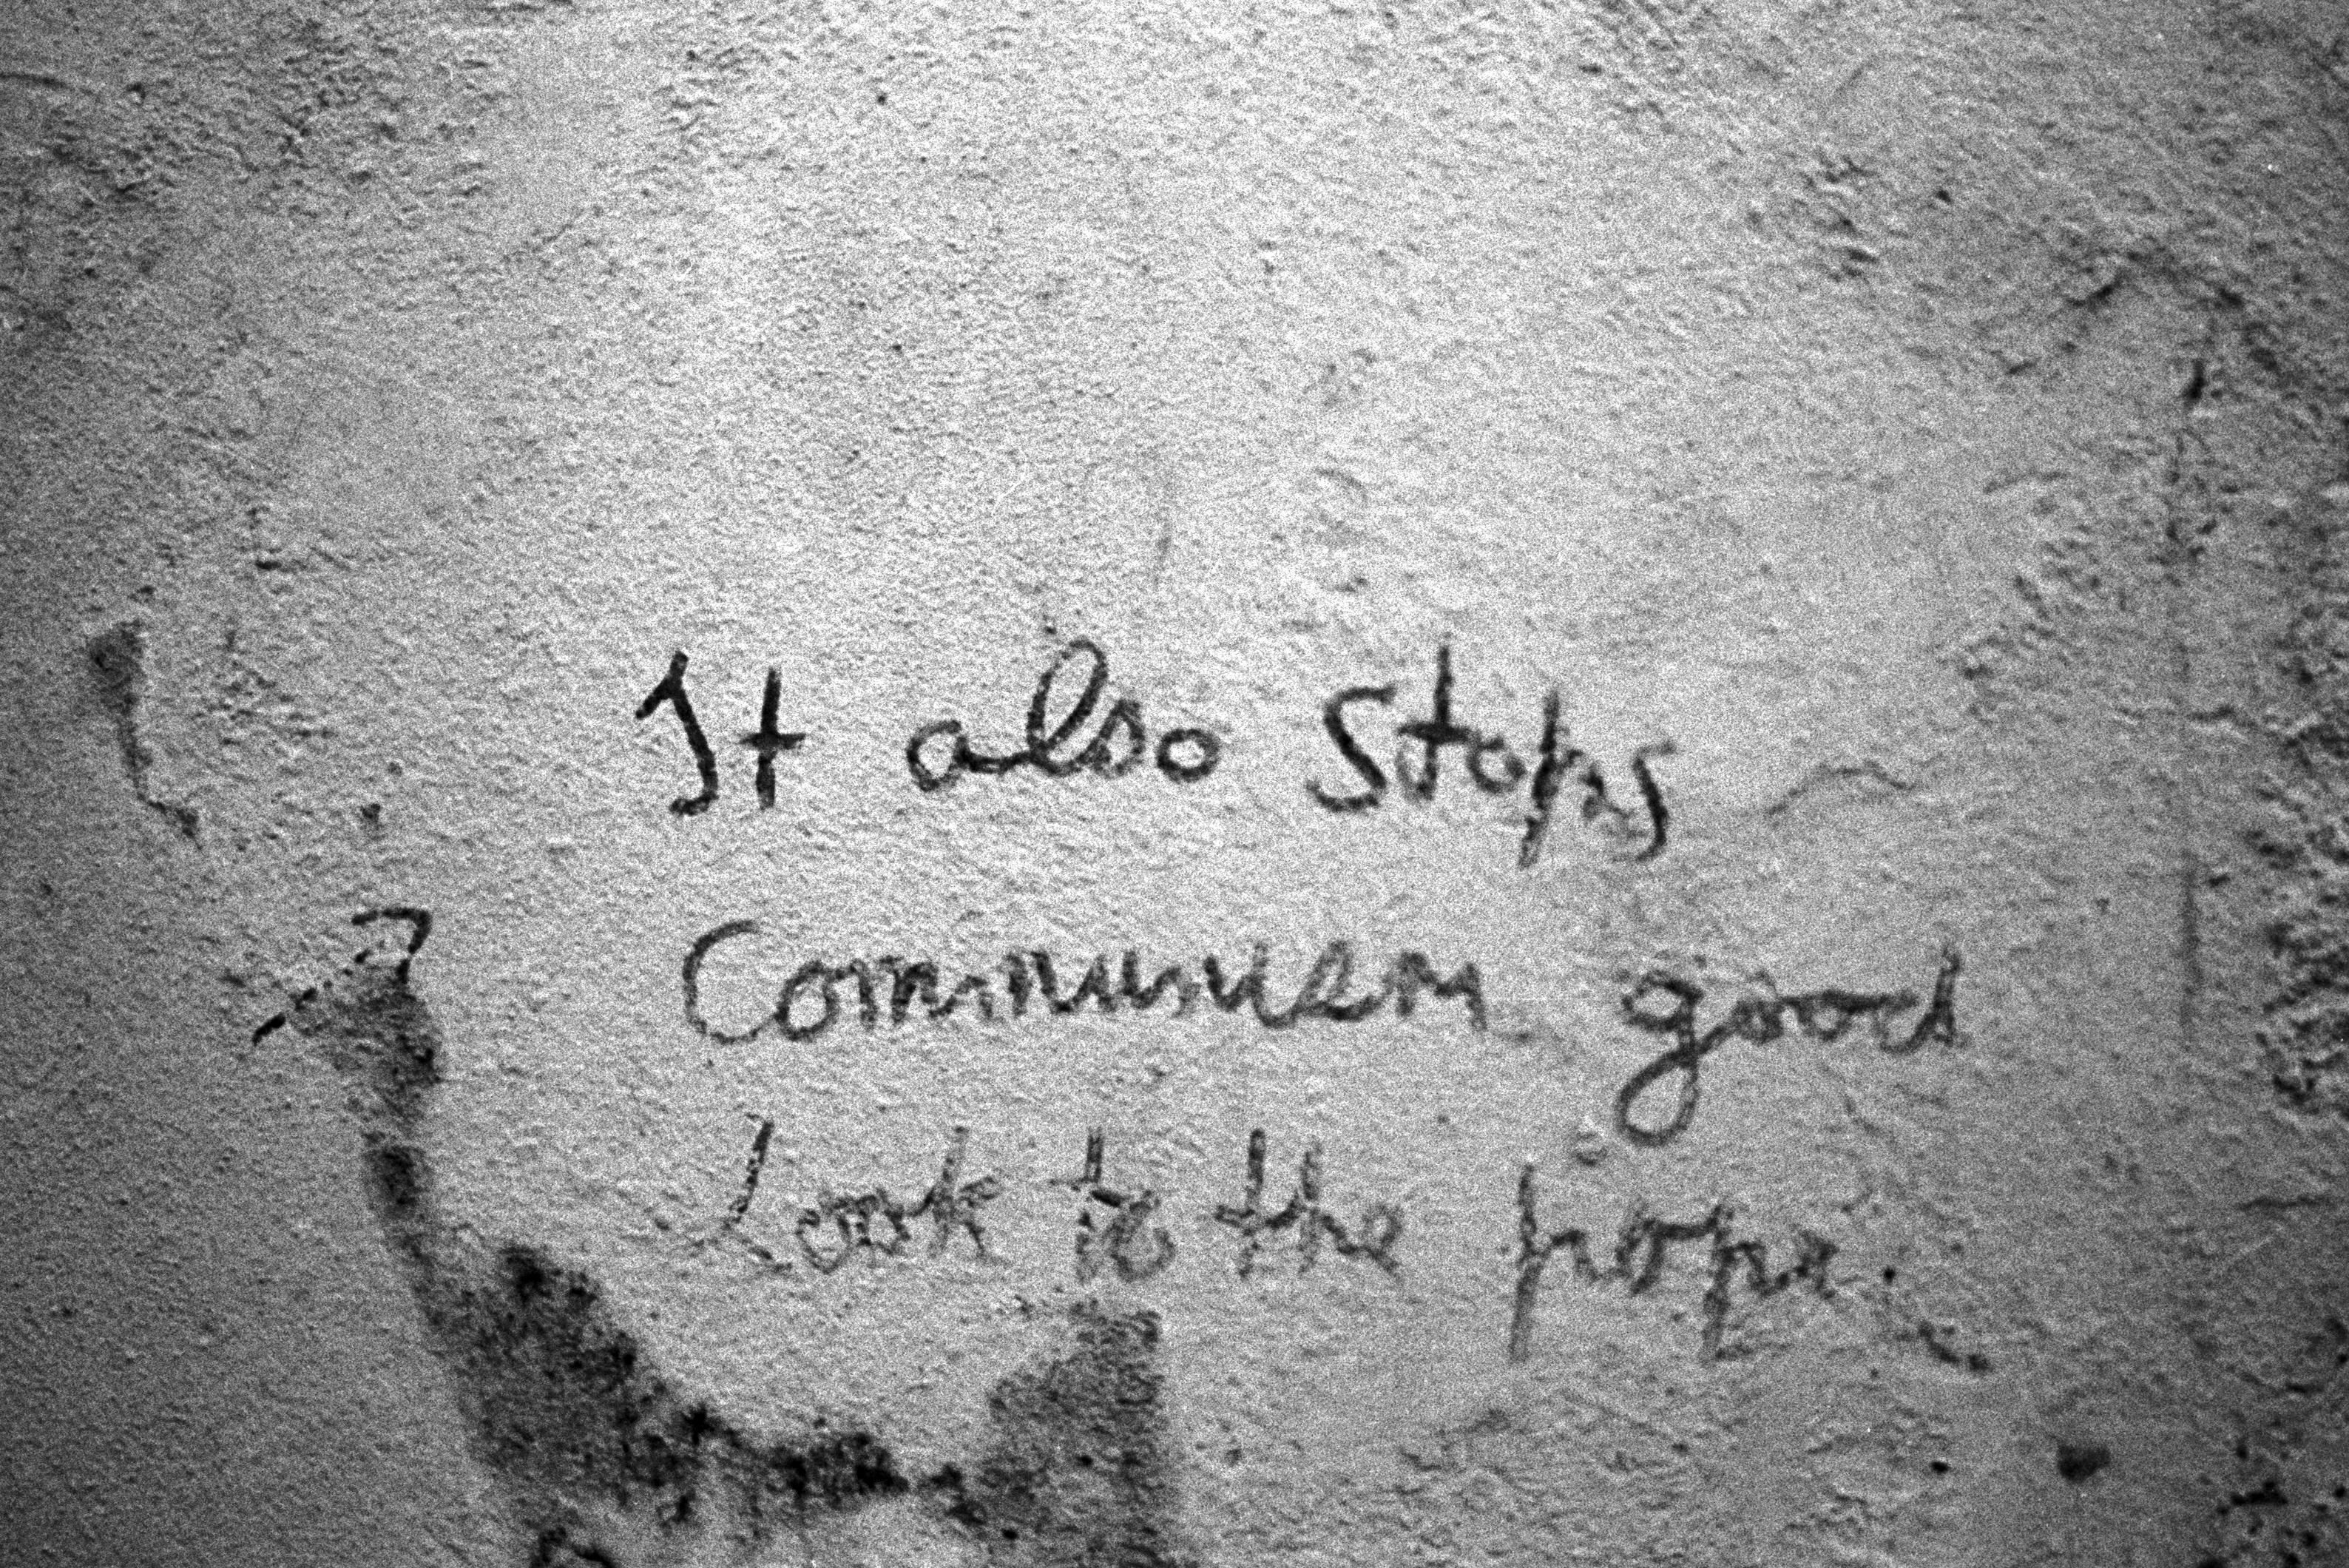 It also stops
Communism good
Look to the pope.